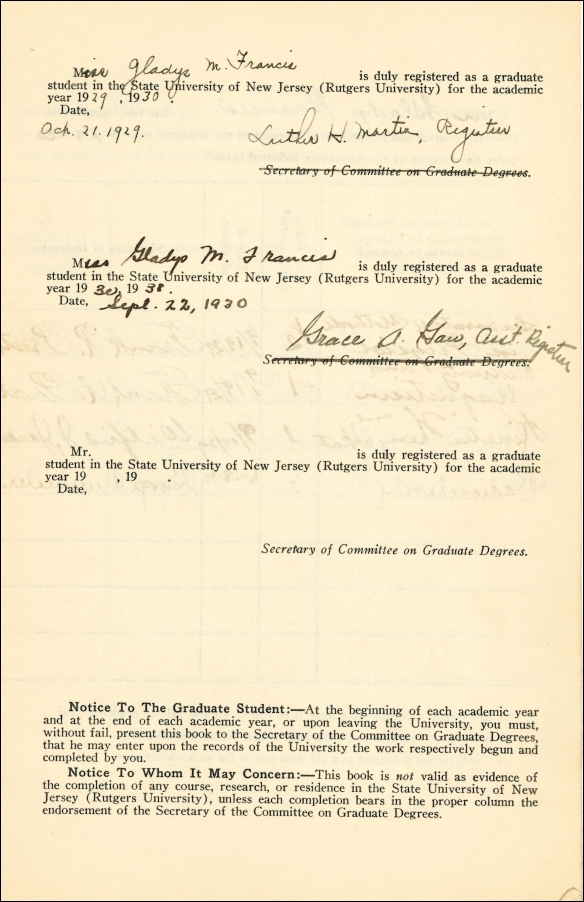 Miss Gladys M. Francis is duly registered as a graduate
student in the State University of New Jersey (Rutgers University) for the academic
year 1929, 1930.
Date,
Oct. 21. 1929.
Luther H. Martin, Registrar
Secretary of Committee on Graduate Degrees.
Miss Gladys M. Francis is duly registered as a graduate
student in the State University of New Jersey (Rutgers University) for the academic
year 1930, 1931.
Date, Sept. 22, 1930
Grace A. Gaw, Asst. Registrar
Secretary of Committee on Graduate Degrees.
Mr. is duly registered as a graduate
student in the State University of New Jersey (Rutgers University) for the academic
year 19 , 19 .
Date,
Secretary of Committee on Graduate Degrees.
Notice To The Graduate Student:—At the beginning of each academic year
and at the end of each academic year, or upon leaving the University, you must,
without fail, present this book to the Secretary of the Committee on Graduate Degrees,
that he may enter upon the records of the University the work respectively begun and
completed by you.
Notice To Whom It May Concern:—This book is not valid as evidence of
the completion of any course, research, or residence in the State University of New
Jersey (Rutgers University), unless each completion bears in the proper column the
endorsement of the Secretary of the Committee on Graduate Degrees.